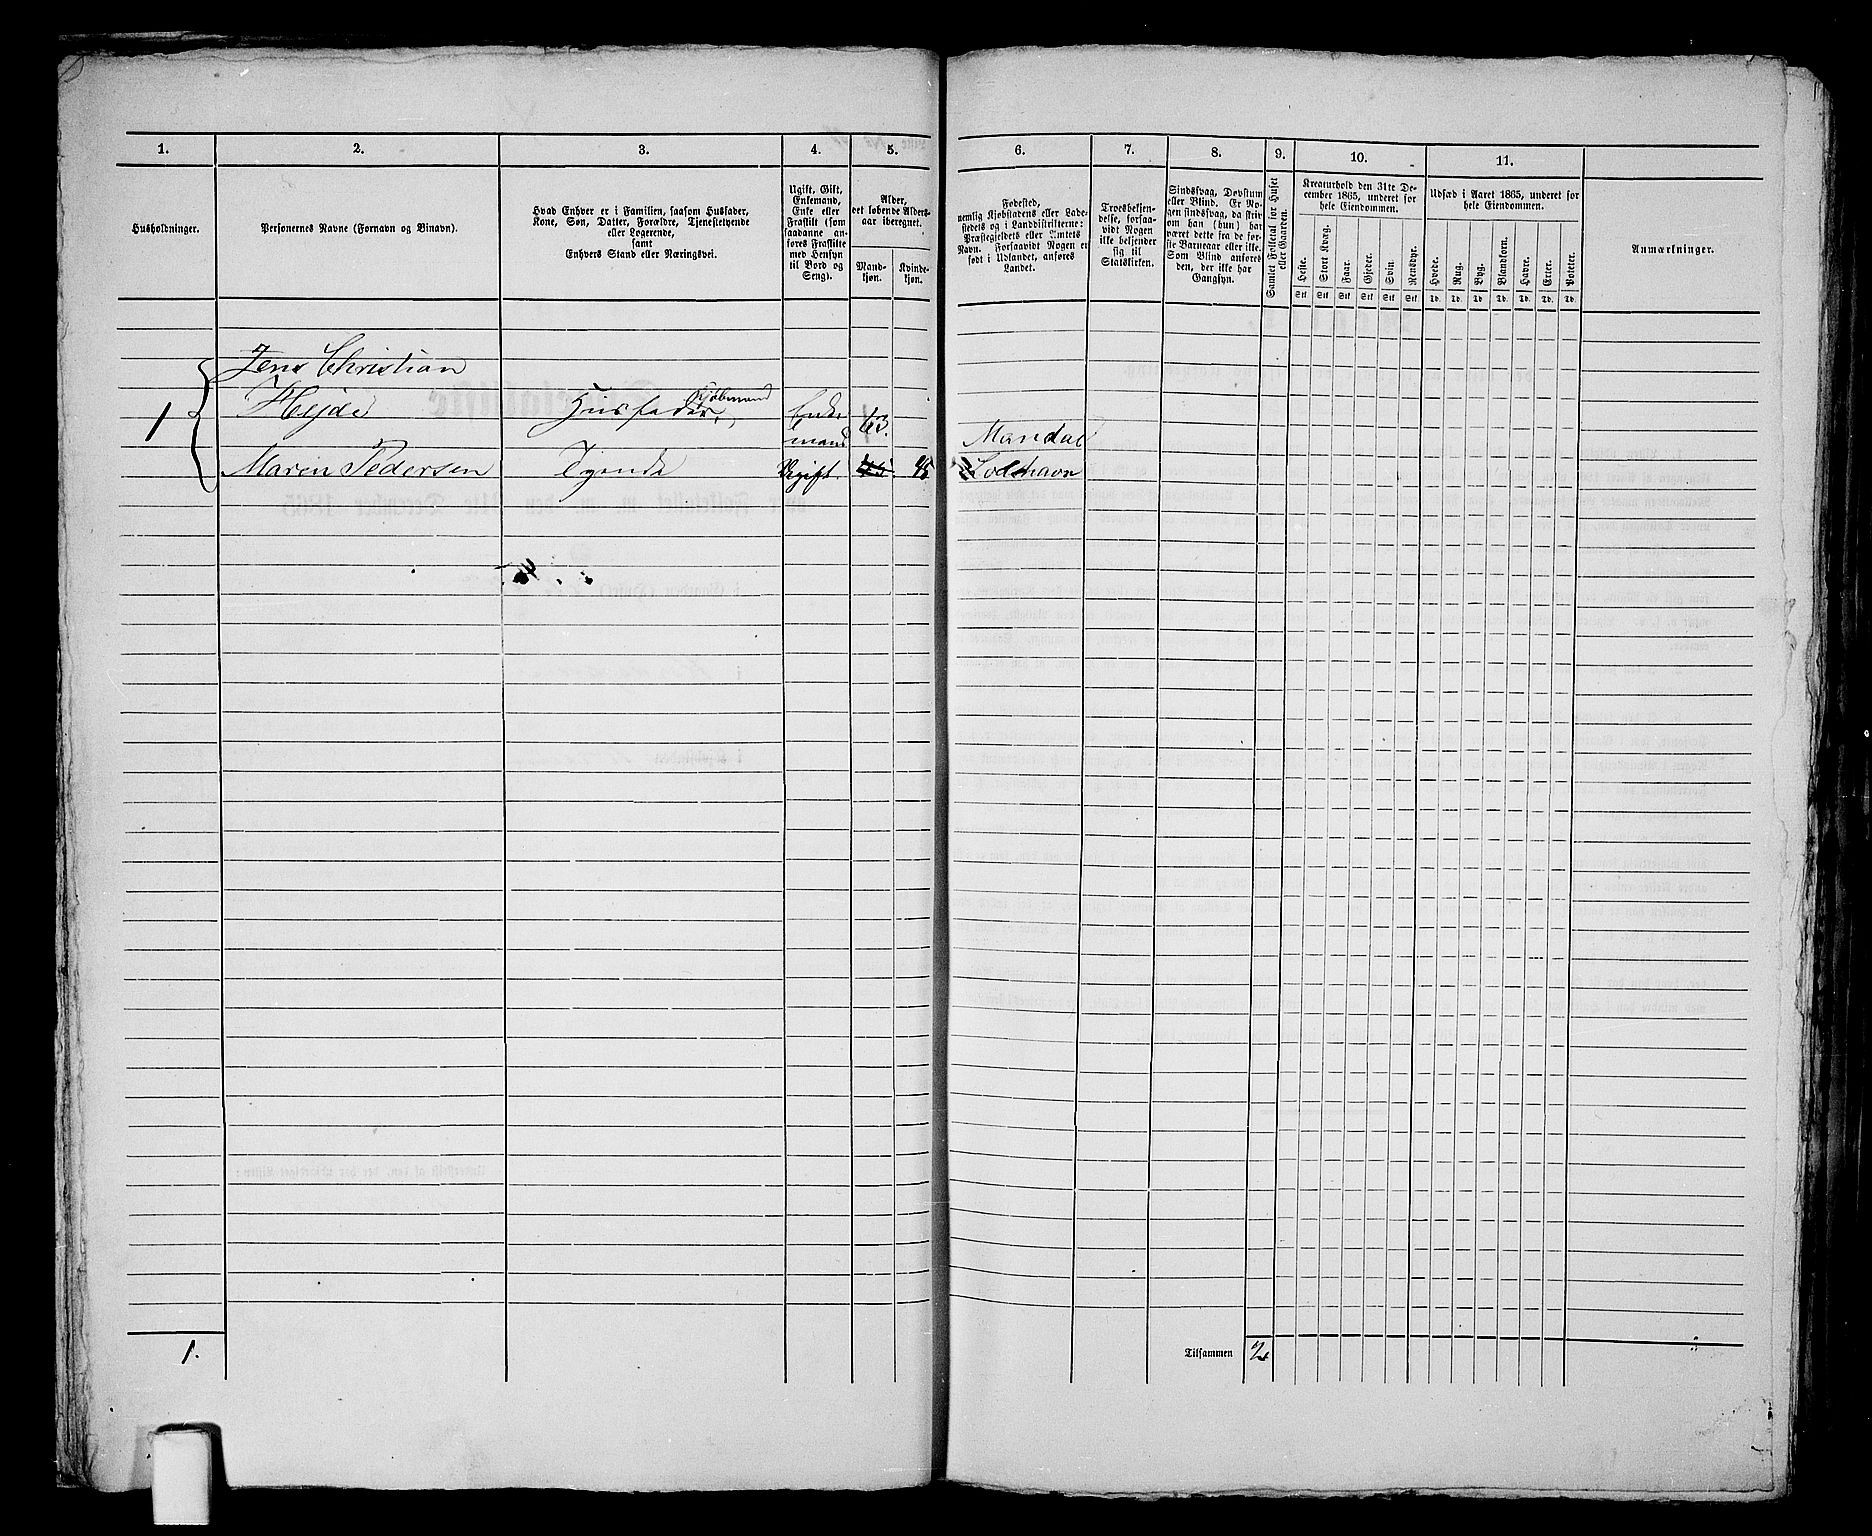 1.
2.
3.
4.
5.
6.
7.
8.
9.
10.
11.
Husholdninger.
Personernes Navne (Fornavn og Binavn).
Hvad Enhver er i Familien, saasom Husfader,
Kone, Søn, Datter, Forældre, Tjenestetyende
eller Logerende,
samt
Enhvers Stand eller Næringsvei.
Ugift, Gift,
Enkemand,
Enke eller
Fraskilt (som
saadanne an-
føres Fraskilte
med Hensyn
til Bord og
Seng).
Alder,
det løbende Alders-
aar iberegnet.
Mand-
kjøn.
Kvinde-
kjøn.
Fødested,
nemlig Kjøbstadens eller Lade-
stedets og i Landdistrikterne:
Præstegjeldets eller Amtets
Navn. Forsaavidt Nogen er
født i Udlandet, anføres
Landet.
Troesbekjen-
delse, forsaa-
vidt Nogen
ikke bekjender
sig til
Statskirken.
Sindssvag, Døvstum
eller Blind. Er No-
gen sindssvag, da skriv
om han (hun) har
været dette fra de før-
ste Barneaar eller ikke.
Som Blind anføres
den, der ikke har
Gangsyn.
Samlet Folketal for Huset
eller Gaarden.
Kreaturhold den 31te De-
cember 1865, underet for
hele Eiendommen.
Heste.
Stort Kvæg.
Faar.
Gjeder.
Svin.
Rensdyr.
Stk
Stk
Stk
Stk
Stk
Stk
Udsæd i Aaret 1865, underet for
hele Eiendommen.
Hvede.
Rug.
Byg.
Blandkorn.
Havre.
Erter.
Poteter.
Td.
Td.
Td.
Td.
Td.
Td.
Td.
Anmærkninger.
Jens Christian
1 Heyde Husfader, Kjøbmand Enke
mand 63. Mandal
Maren Pedersen Tyende Ugift. 45
1.
Tilsammen 2